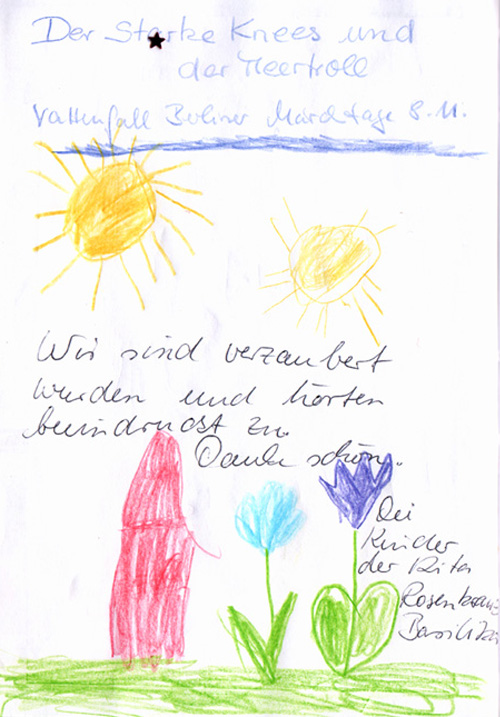 Der Starke Knees und
der Meertroll
Vattenfall Berliner Märchtage 8.11.
Wir sind verzaubert
wurden und hörten
beindruckt zu.
Danke schön.
Die
Kinder
der Kita
Rosenkranz
Basilika